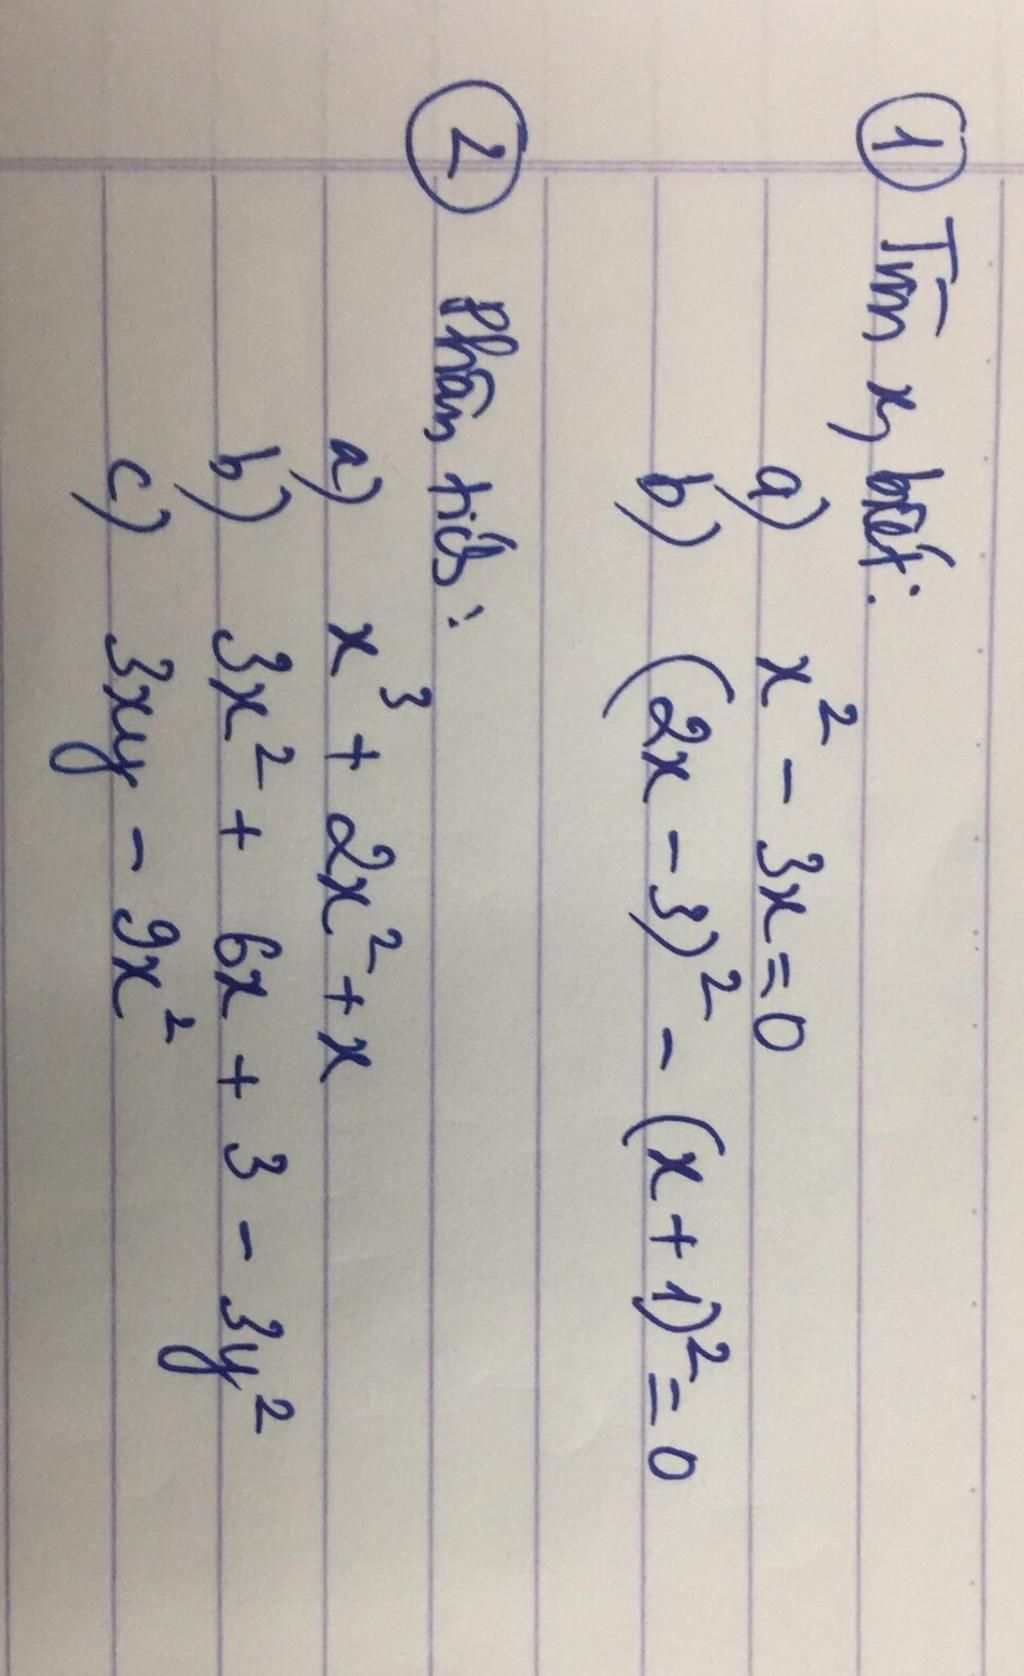 ① Tìm x, biết:
a) x² - 3x = 0
b) (2x - 3)² - (x + 1)² = 0
② Phân tích:
a) x³ + 2x² + x
b) 3x² + 6x + 3 - 3y²
c) 3xy - 9x²